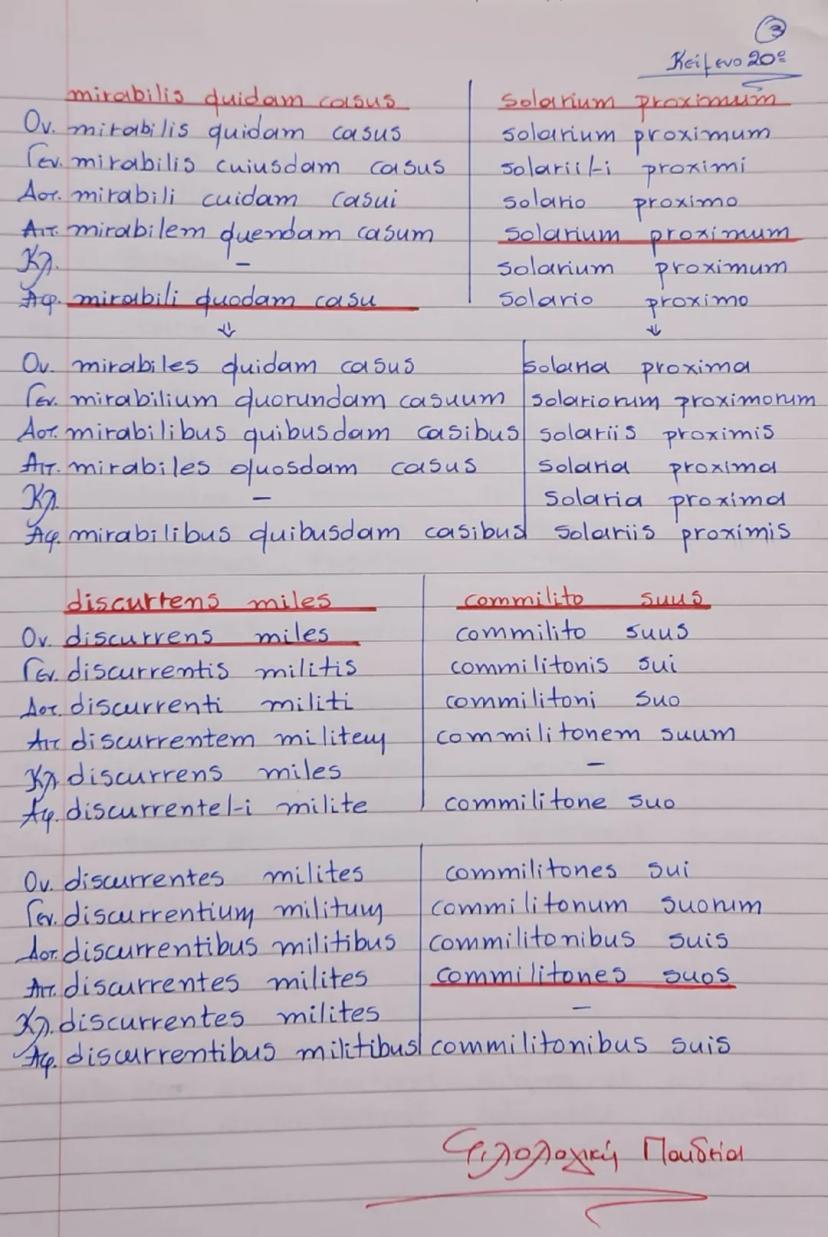 3
Κείμενο 20º
mirabilis quidam casus solarium proximum
Ον. mirabilis quidam casus solarium proximum
Γεν. mirabilis cuiusdam casus solarii/-i proximi
Δοτ. mirabili cuidam casui solario proximo
Αιτ. mirabilem quendam casum solarium proximum
Κλ. - solarium proximum
Αφ. mirabili quodam casu solario proximo
Ον. mirabiles quidam casus solaria proxima
Γεν. mirabilium quorundam casuum solariorum proximorum
Δοτ. mirabilibus quibusdam casibus solariis proximis
Αιτ. mirabiles quosdam casus solaria proxima
Κλ. - solaria proxima
Αφ. mirabilibus quibusdam casibus solariis proximis
discurrens miles commilito suus
Ον. discurrens miles commilito suus
Γεν. discurrentis militis commilitonis sui
Δοτ. discurrenti militi commilitoni suo
Αιτ discurrentem militem commilitonem suum
Κλ discurrens miles -
Αφ. discurrente/-i milite commilitone suo
Ον. discurrentes milites commilitones sui
Γεν. discurrentium militum commilitonum suorum
Δοτ. discurrentibus militibus commilitonibus suis
Αιτ. discurrentes milites commilitones suos
Κλ. discurrentes milites -
Αφ. discurrentibus militibus commilitonibus suis
Φιλολογική Παιδεία